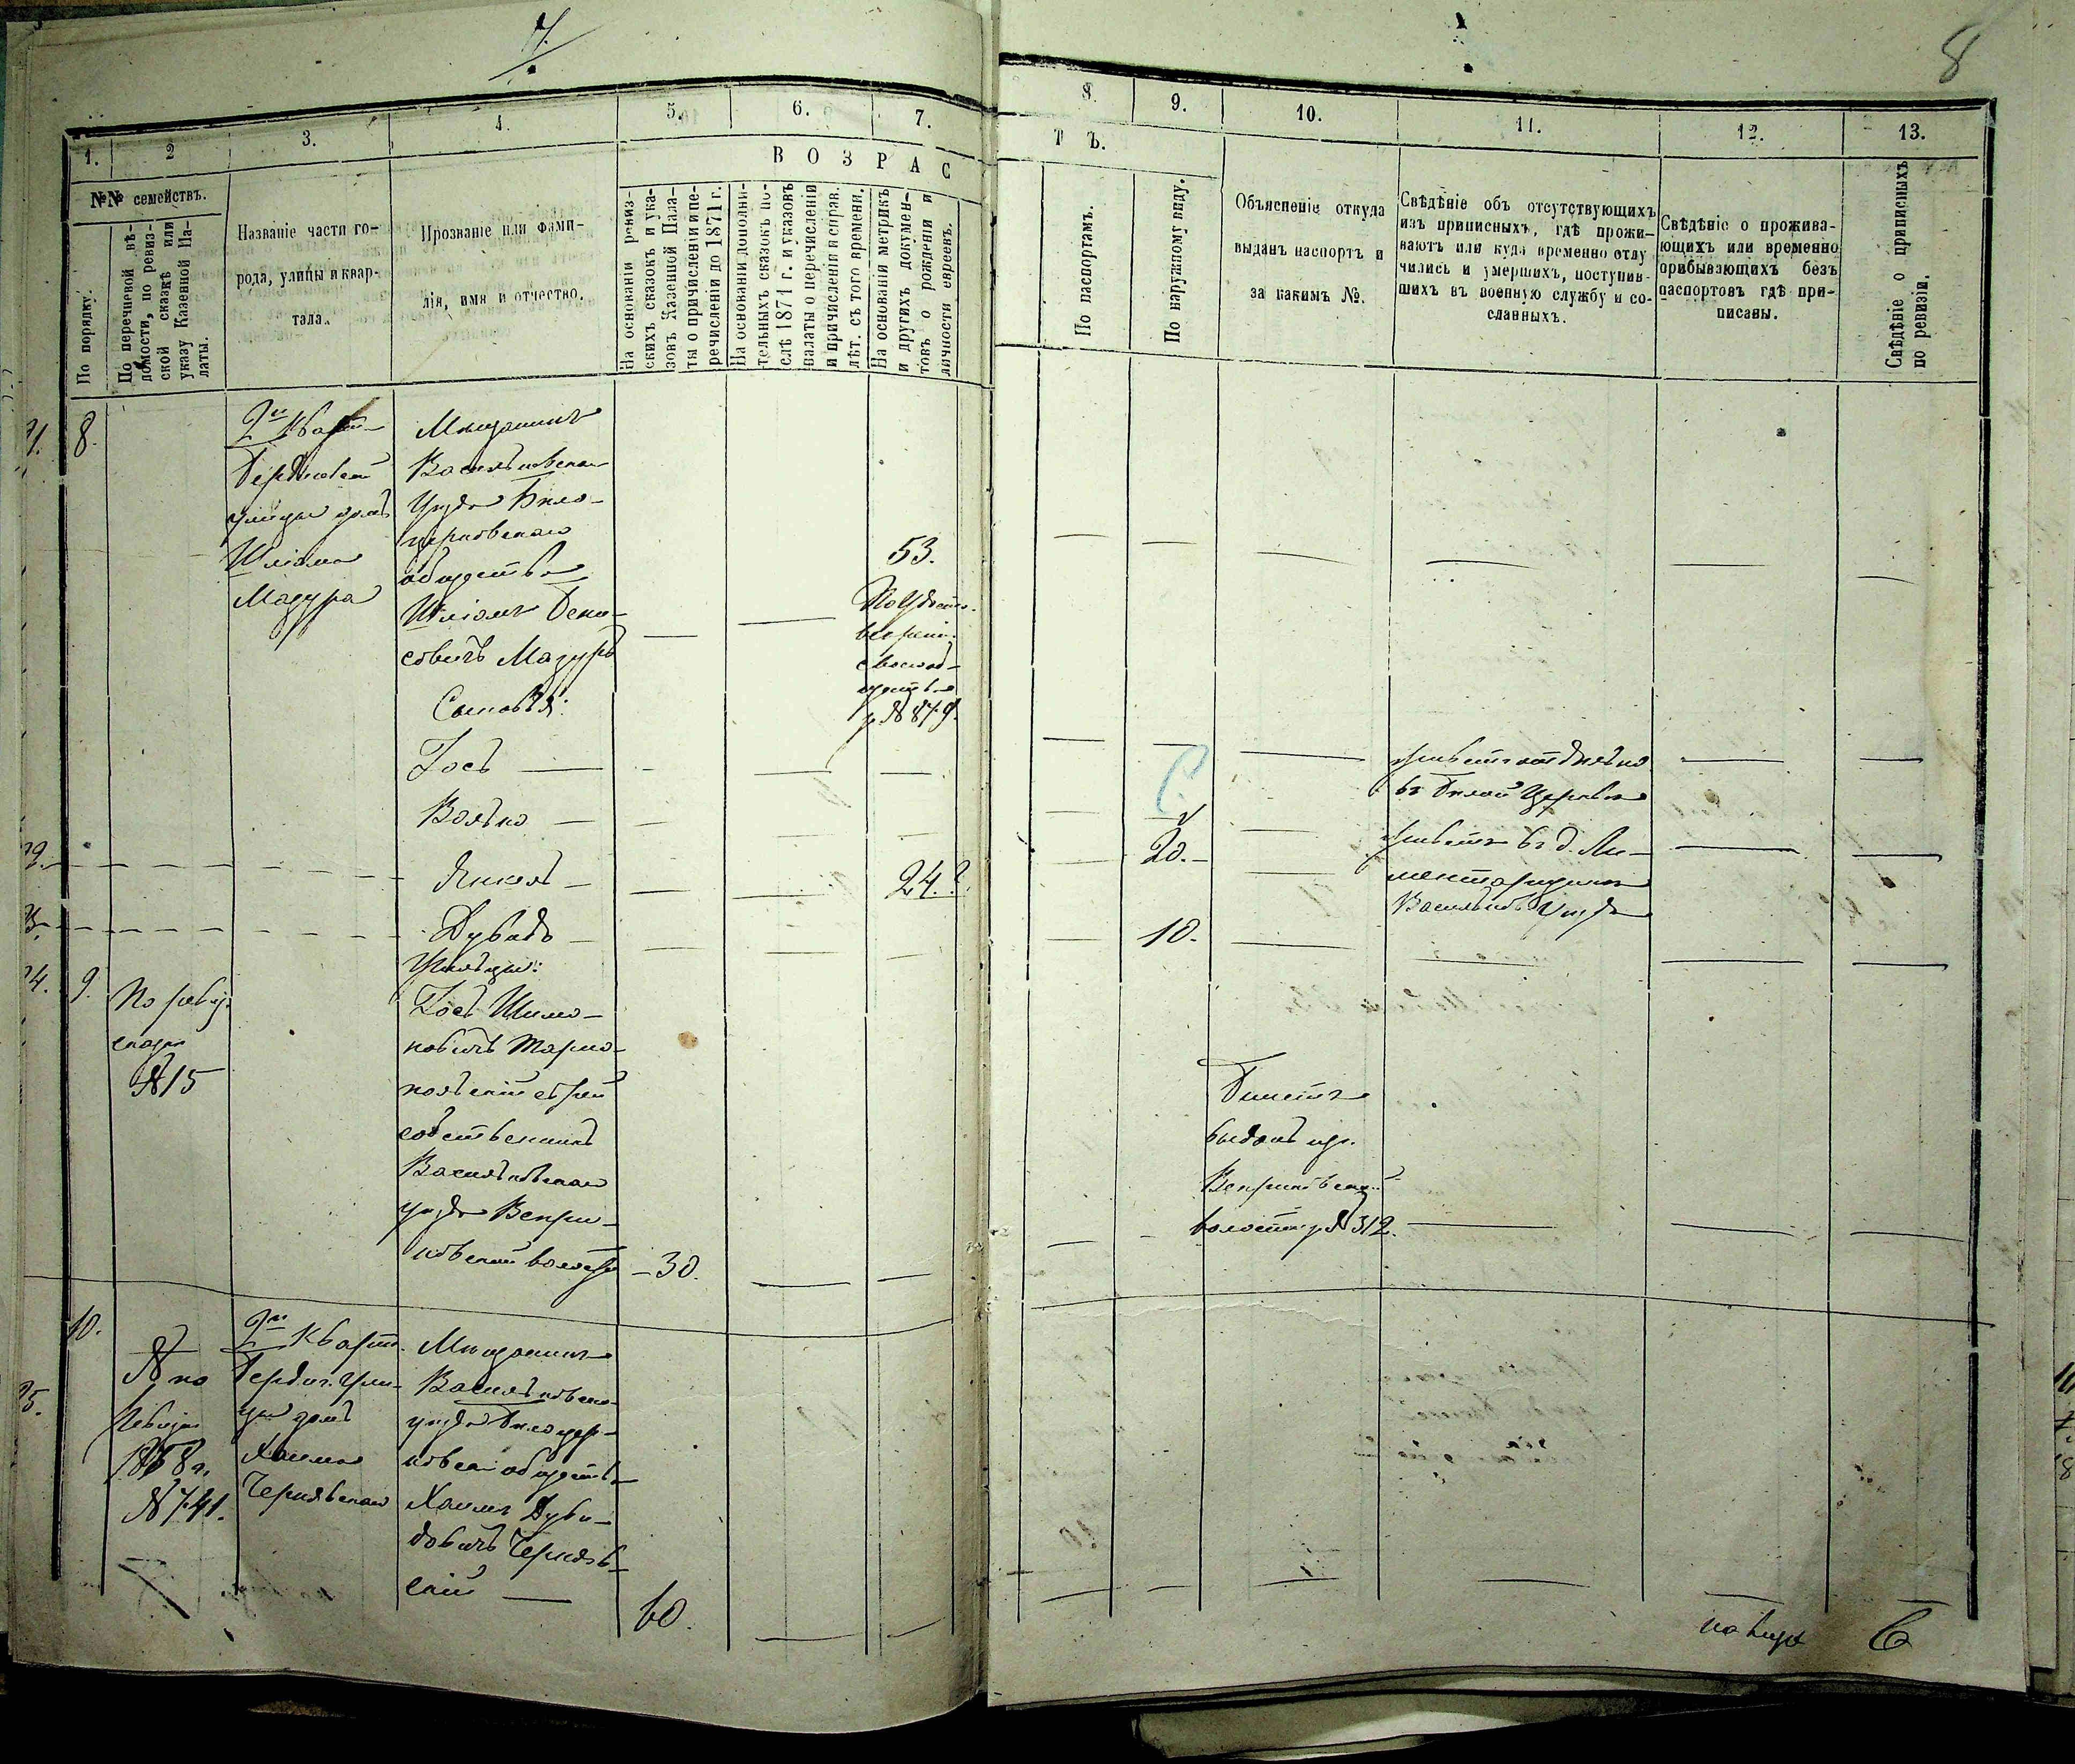 7
8
1.
2
3.
4.
5.
6.
7.
8.
9.
10.
11.
12.
13.
В О З Р А С
Т Ъ.
№№ семействъ.
По порядку.
По перечневой вѣ-
домости, по ревиз-
ской сказкѣ или
указу Казенной Па-
латы.
Названіе части го-
рода, улицы и квар-
тала.
Прозваніе или фами-
лія, имя и отчество.
На основаніи ревиз-
скихъ сказокъ и ука-
зовъ Казенной Пала-
ты о причисленіи и пе-
речисленіи до 1871 г.
На основаніи дополни-
тельныхъ сказокъ по-
слѣ 1871 г. и указовъ
палаты о перечисленіи
и причисленіи и справ.
лѣт. съ того времени.
На основаніи метрикъ
и другихъ докумен-
товъ о рожденіи и
личности евреевъ.
По паспортамъ.
По наружному виду.
Объясненіе откуда
выданъ паспортъ и
за какимъ №.
Свѣдѣніе объ отсутствующихъ
изъ приписныхъ, гдѣ прожи-
ваютъ или куда временно отлу
чились и умершихъ, поступив-
шихъ въ военную службу и со-
сланныхъ.
Свѣдѣніе о прожива-
ющихъ или временно
прибывающихъ безъ
паспортовъ гдѣ при-
писаны.
Свѣдѣніе о приписныхъ
по ревизіи.
8.
2й Кварт
улицы домъ
Шліома
Мазура
Мѣщанинъ
Васильковскаго
Уѣзда Бѣло-
церковскаго
общества
Шліома Бено-
совичъ Мазуръ
Сыновья:
Іось
Волько
Янкель
Дувидъ
53.
По удосто-
вѣренію
№ 879.
24.
20.
10.
живетъ отдѣльно
въ Бѣлой Церкви
живетъ въ д.
Васильков. Уѣзда
9.
По ревиз.
сказкѣ
№ 15
Жильцы:
Іось Шимо-
новичъ Тарно-
польскій еврей
собственникъ
Васильковскаго
уѣзда Веприн-
ковской волости
30.
Билетъ
выданъ изъ
Вепринковской
волости № 312.
10.
№ по
Ревизіи
1858 г.
№ 741.
2й Кварт.
Бердич. Ули-
цы домъ
Хаима
Чернявскаго
Мѣщанинъ
Васильковскаго
уѣзда Бѣлоцер-
ковскаго общества
Хаимъ Дуви-
довичъ Черняв-
скій
60.
на лицо
6